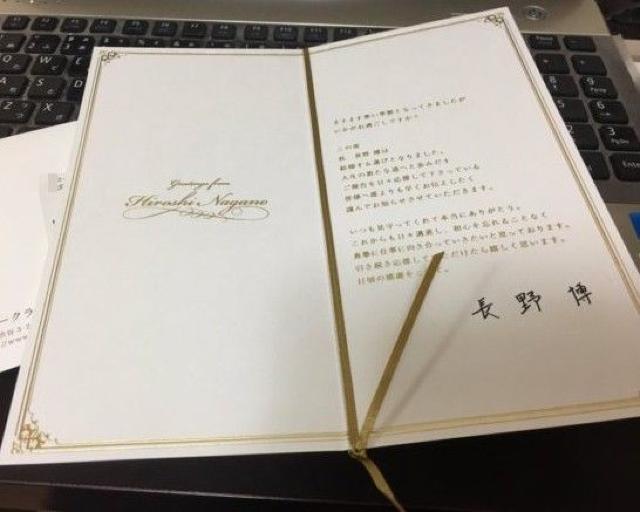 Greetings from
Hiroshi Nagano
ますます寒い季節となってきましたが
いかがお過ごしですか？
この度
私 長野 博は
結婚する運びとなりました。
人生の新たな道へと歩みだす
ご報告を日々応援して下さっている
皆様へ誰よりも早くお伝えしたく
謹んでお知らせさせていただきます。
いつも見守ってくれて本当にありがとう。
これからも日々邁進し、初心を忘れることなく
真摯に仕事に向き合っていきたいと思っております。
引き続き応援して ただけたら嬉しく思います。
日頃の感謝を
長野 博
ークラ